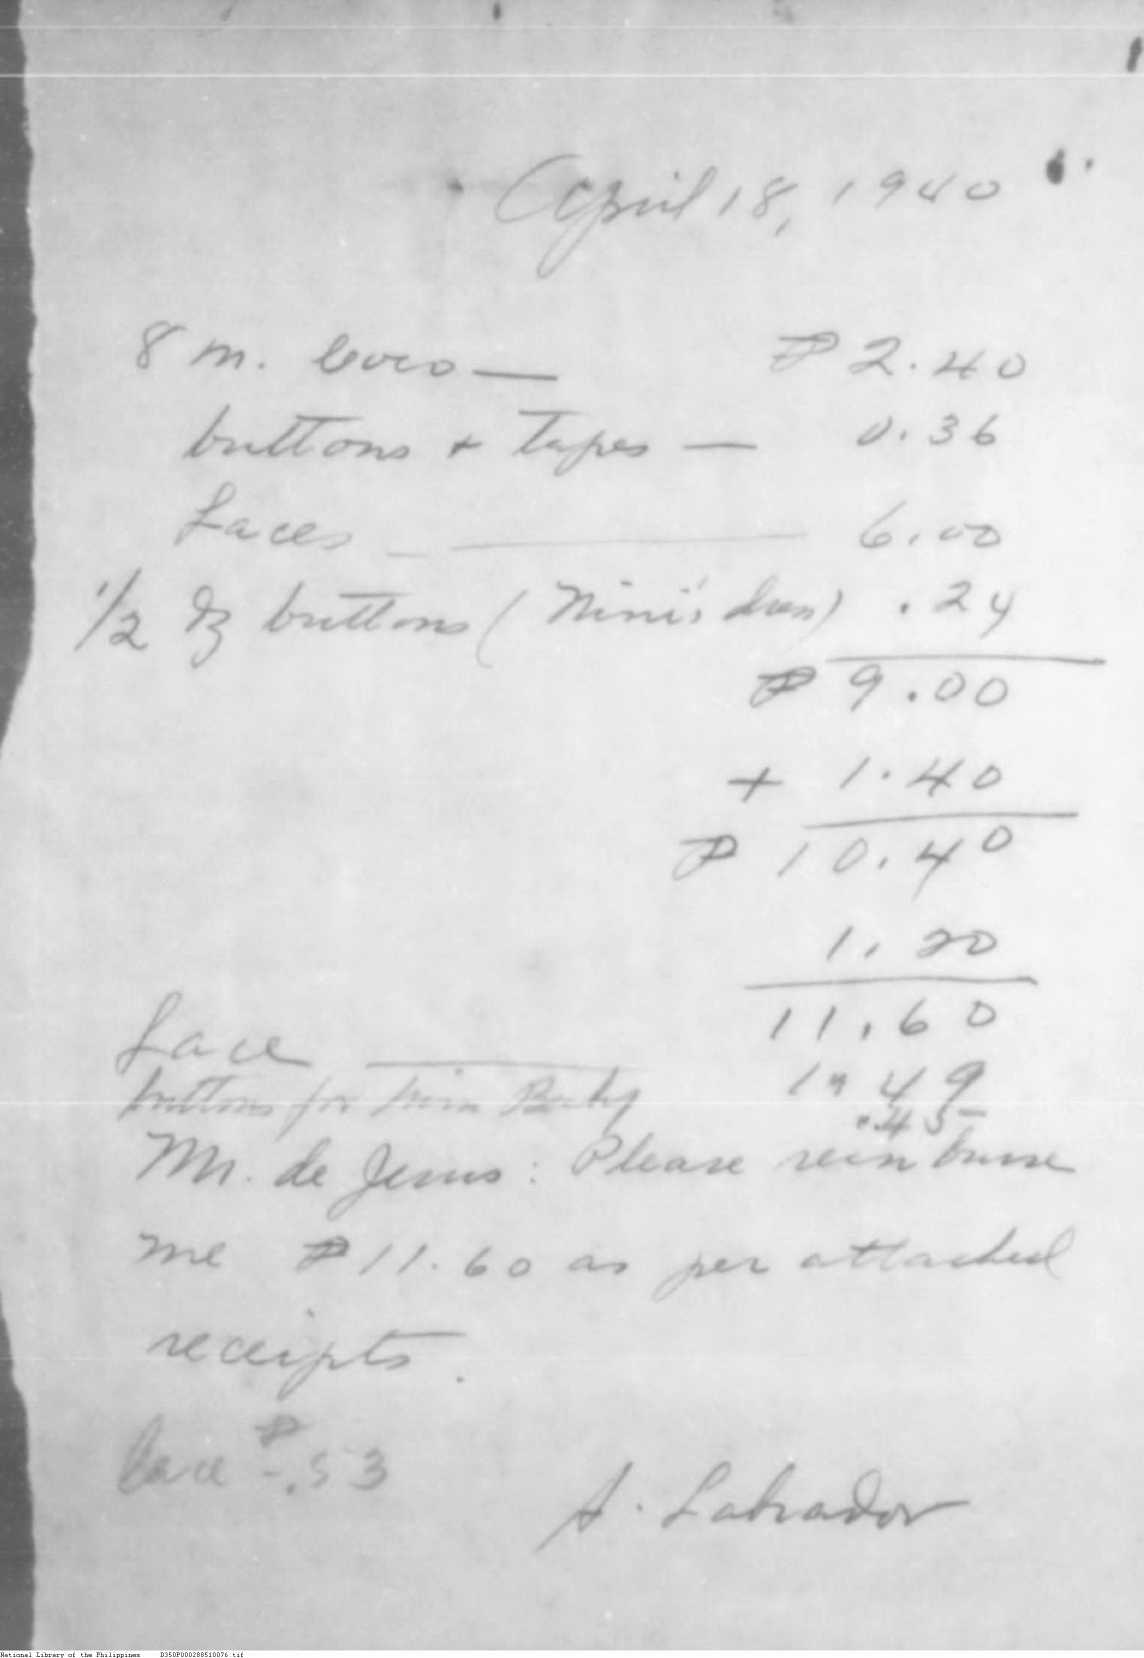 April 18, 1940
8 m. coco — ₱ 2.40
buttons + tapes — 0.36
Laces — 6.00
1/2 dz buttons (Nini's dress) .24
₱ 9.00
+ 1.40
₱ 10.40
1.20
11.60
Lace — 1.49
buttons for Baby .45
Mr. de Jesus: Please reimburse
me ₱ 11.60 as per attached
receipts.
lace ₱ -.53
A. Labrador
National Library of the Philippines D350P000288510076.tif